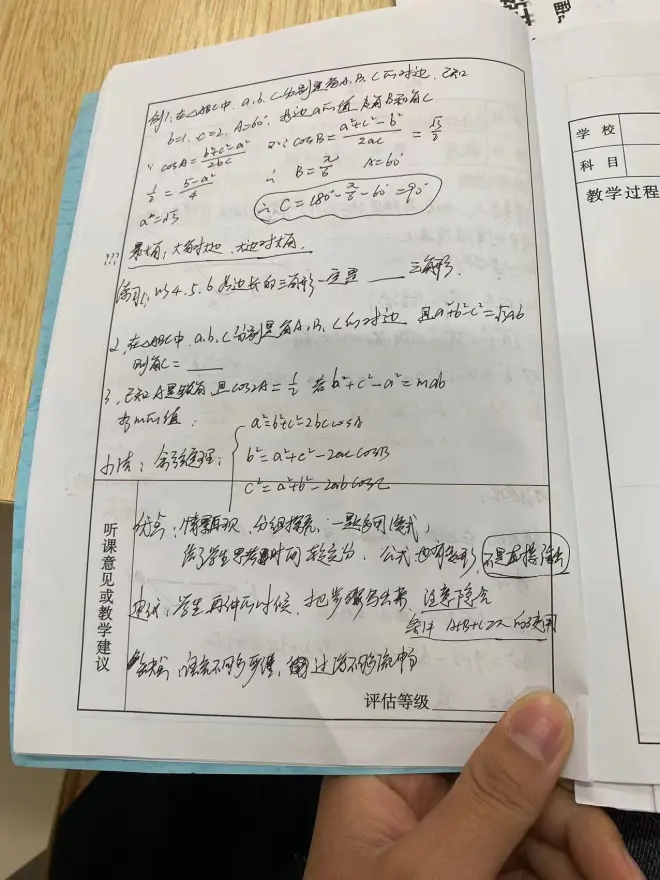 例1.在△ABC中.a.b.c分别是角A.B.C的对边.已知
b=1.c=2.A=60°.求边a的值及角B和角C
∵ cosA=\frac{b²+c²-a²}{2bc} ∵ cosB=\frac{a²+c²-b²}{2ac} = \frac{√3}{2}
\frac{1}{2} = \frac{5-a²}{4} ∴ B=\frac{π}{6} A=60°
a=√3 ∴ C=180°-\frac{π}{6}-60°=90°
??? 最大角：大角对大边.大边对大角.
练习1.以4.5.6为边长的三角形一定是 ___ 三角形.
2.在△ABC中.a.b.c分别是角A.B.C的对边 且a²+b²-c²=√3ab
则角C= ___
3.已知A是锐角且cos2A=\frac{1}{2} 若b²+c²-a²=mab
求m的值.
小结：余弦定理：
a²=b²+c²-2bccosA
b²=a²+c²-2accosB
c²=a²+b²-2abcosC
听课意见或教学建议
优点：情景 分组探究.一题多问
给了学生思考时间较充分. 公式也有变形.不是直接
建议：学生 的时候.把步骤写出来.注意隐含
条件 A+B+C=π的使用
不够 过渡不够流畅
评估等级
学 校
科 目
教学过程